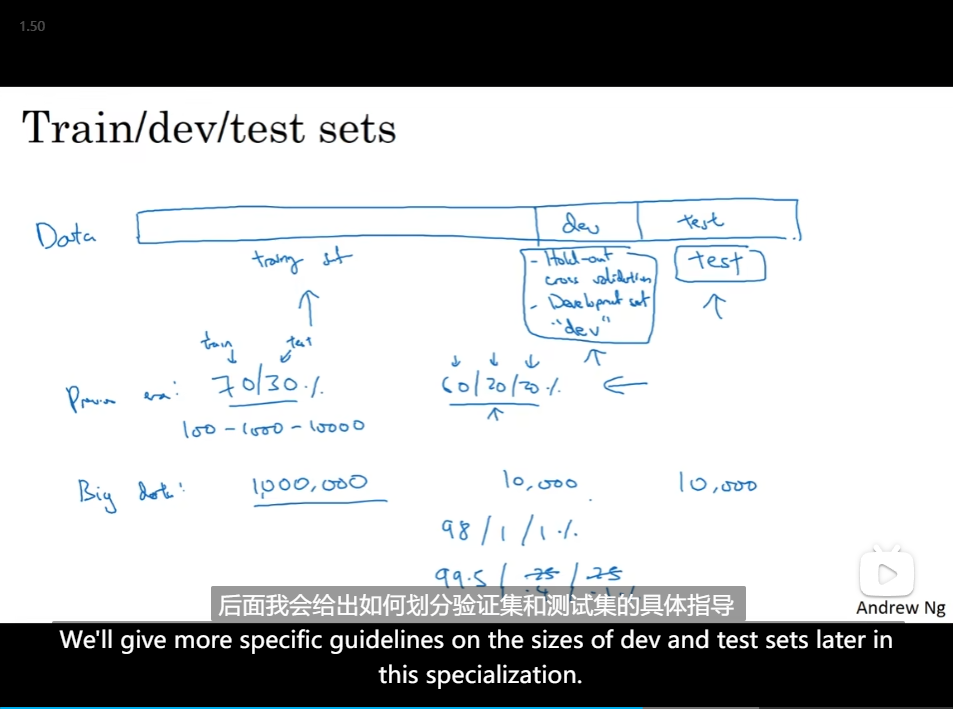 1.50
Train/dev/test sets
Data
dev
test
training set
- Hold-out
cross validation
- Development set
"dev"
test
train
test
Previous era:
70/30%
60/20/20%
100 - 1000 - 10000
Big data:
1,000,000
10,000
10,000
98/1/1%
99.5/
25
/
25
Andrew Ng
后面我会给出如何划分验证集和测试集的具体指导
We'll give more specific guidelines on the sizes of dev and test sets later in
this specialization.